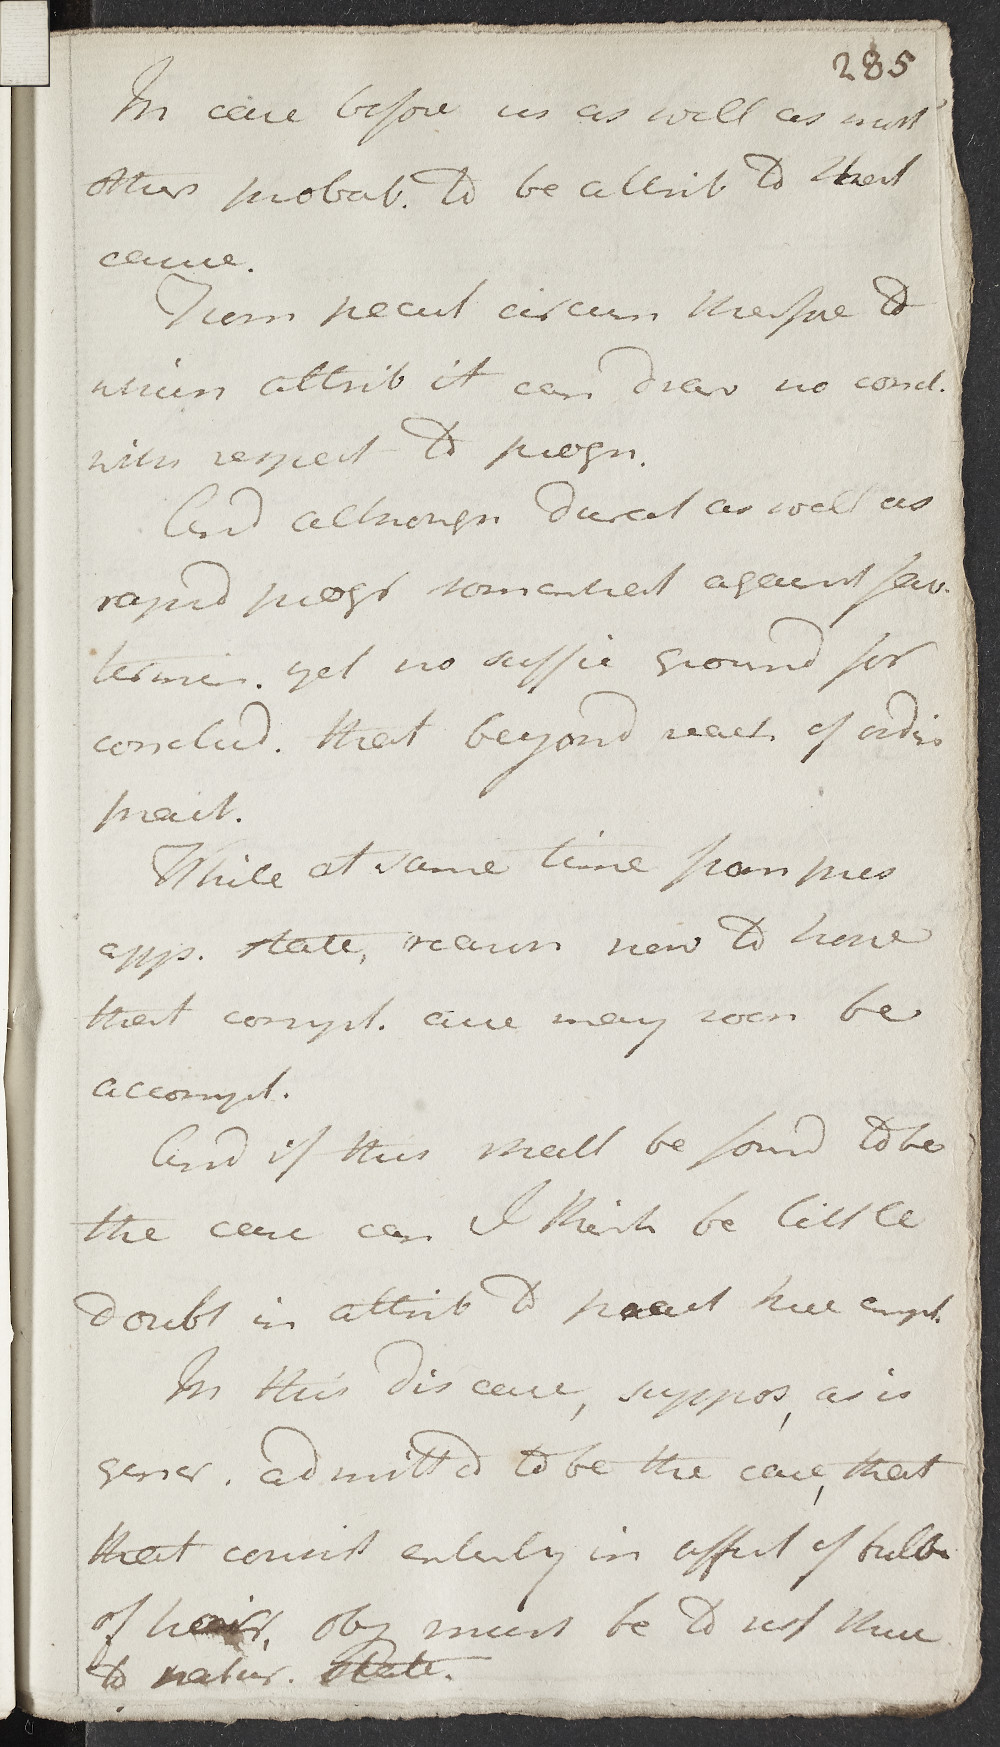 285
In case before us as well as most
others probab. to be attrib to that
cause.
From pecul circum therfore to
which attrib it can draw no concl.
with respect to progn.
And although durat as well as
rapid progr somewhat against fav.
termin. yet no suffic ground for
conclud. that beyond reach of ordin
pract.
While at same time from pres
app. state, reason now to hope
that compl. cure may soon be
accompl.
And if this shall be found to be
the case can I think be little
doubt in attrib to pract here empl.
In this disease, suppos, as is
gener. admitted to be the case, that
that consist entirely in affect of bulbs
of hair, obj must be to rest these
to natur. state.